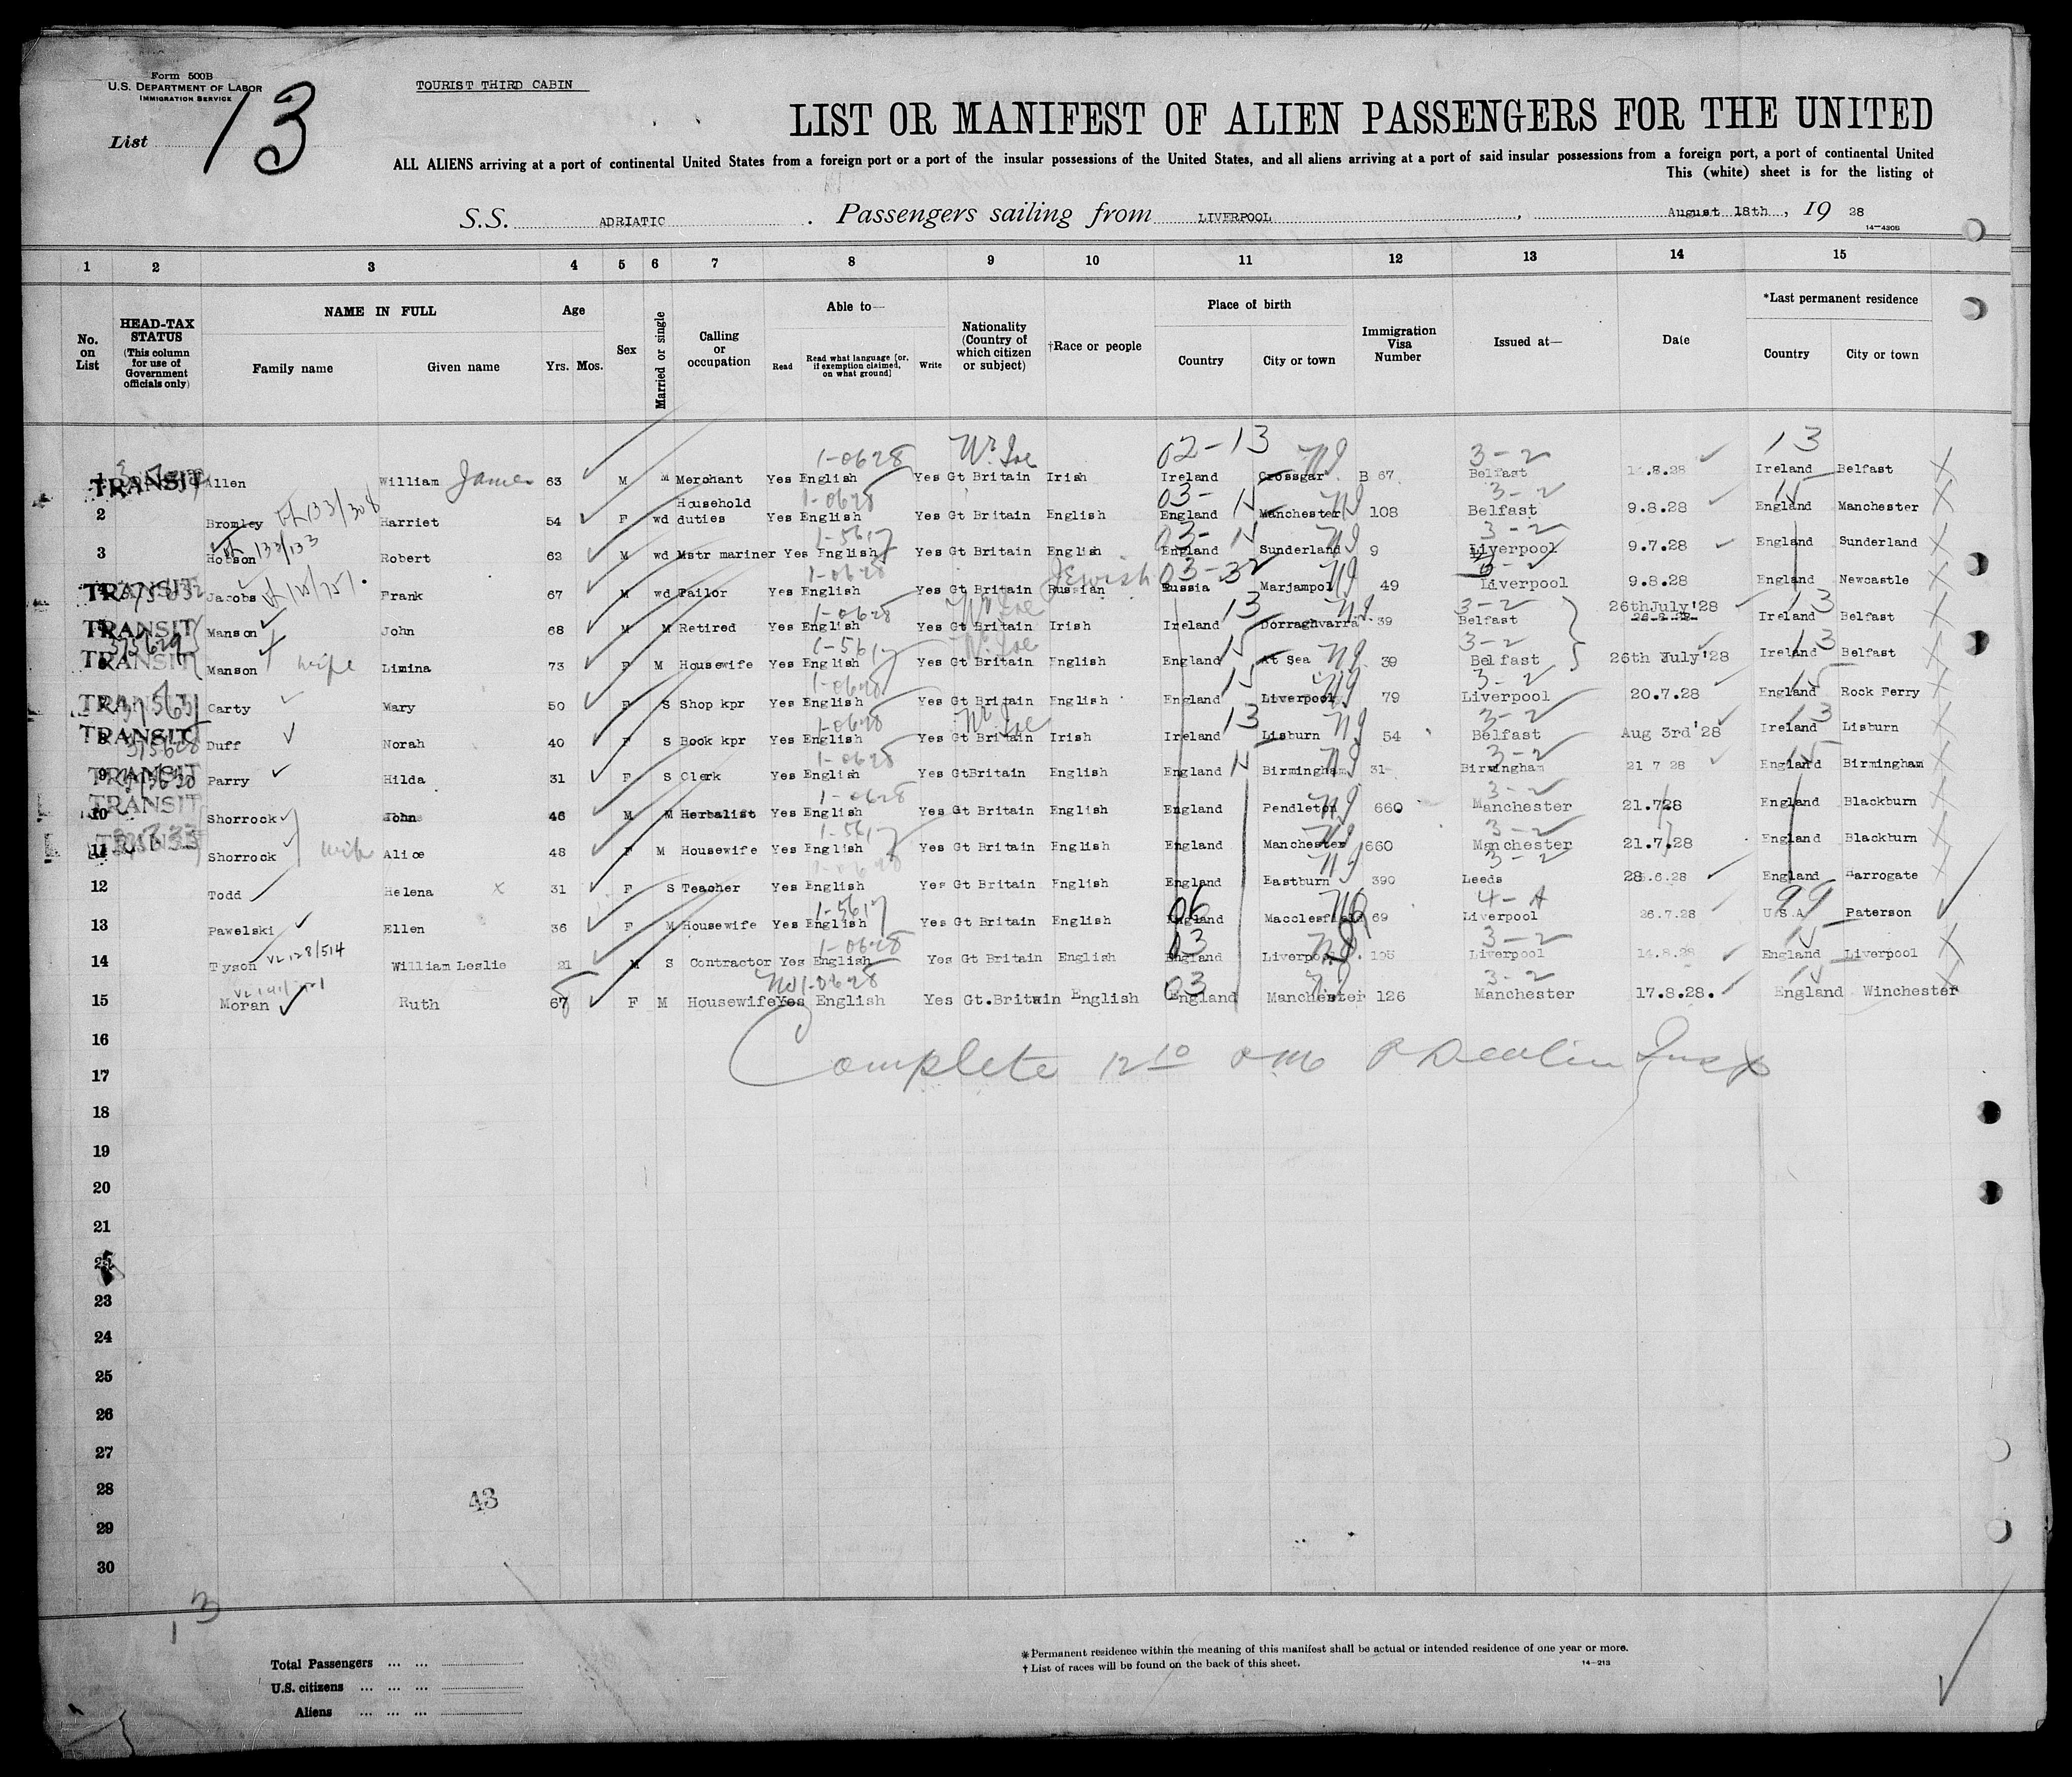 Form 500B
U.S. DEPARTMENT OF LABOR
IMMIGRATION SERVICE
List 13
TOURIST THIRD CABIN
LIST OR MANIFEST OF ALIEN PASSENGERS FOR THE UNITED
ALL ALIENS arriving at a port of continental United States from a foreign port or a port of the insular possessions of the United States, and all aliens arriving at a port of said insular possessions from a foreign port, a port of continental United
This (white) sheet is for the listing of
S.S. ADRIATIC . Passengers sailing from LIVERPOOL , August 18th , 19 28
14—430B
1 2 3 4 5 6 7 8 9 10 11 12 13 14 15
No. on List
HEAD-TAX STATUS (This column for use of Government officials only)
NAME IN FULL Family name Given name
Age Yrs. Mos.
Sex
Married or single
Calling or occupation
Able to— Read Read what language [or, if exemption claimed, on what ground] Write
Nationality (Country of which citizen or subject)
†Race or people
Place of birth Country City or town
Immigration Visa Number
Issued at—
Date
*Last permanent residence Country City or town
1-0628 02-13 NJ 3-2 13
1 TRANSIT Allen William James 63 M M Merchant Yes English Yes Gt Britain Irish Ireland Crossgar B 67 Belfast 14.8.28 Ireland Belfast
Household 1-0628 03- NJ 3-2
2 Bromley 133/308 Harriet 54 F wd duties Yes English Yes Gt Britain English England Manchester 108 Belfast 9.8.28 England Manchester
133/133 1-5617 03- NJ 3-2
3 Hobson Robert 62 M wd Mstr mariner Yes English Yes Gt Britain English England Sunderland 9 Liverpool 9.7.28 England Sunderland
1-0628 Jewish 03-32 NJ 3-2
4 TRANSIT Jacobs Frank 67 M wd Tailor Yes English Yes Gt Britain Russian Russia Marjampol 49 Liverpool 9.8.28 England Newcastle
1-0628 13 NJ 3-2 26thJuly'28 13
5 TRANSIT Manson John 68 M M Retired Yes English Yes Gt Britain Irish Ireland Dorraghvarra 39 Belfast Ireland Belfast
1-5617 15 NJ 3-2 13
6 TRANSIT Manson wife Limina 73 F M Housewife Yes English Yes Gt Britain English England At Sea 39 Belfast 26th July'28 Ireland Belfast
1-0628 15 NJ 3-2 15
7 TRANSIT Carty Mary 50 F S Shop kpr Yes English Yes Gt Britain English England Liverpool 79 Liverpool 20.7.28 England Rock Ferry
1-0628 13 NJ 3-2 13
8 TRANSIT Duff Norah 40 F S Book kpr Yes English Yes Gt Britain Irish Ireland Lisburn 54 Belfast Aug 3rd'28 Ireland Lisburn
1-0628 NJ 3-2 15
9 TRANSIT Parry Hilda 31 F S Clerk Yes English Yes GtBritain English England Birmingham 31 Birmingham 21 7 28 England Birmingham
1-0628 NJ 3-2
10 TRANSIT Shorrock John 46 M M Herbalist Yes English Yes Gt Britain English England Pendleton 660 Manchester 21.728 England Blackburn
1-5617 NJ 3-2
11 TRANSIT Shorrock wife Alice 48 F M Housewife Yes English Yes Gt Britain English England Manchester 660 Manchester 21.7.28 England Blackburn
1-0628 NJ 3-2
12 Todd Helena x 31 F S Teacher Yes English Yes Gt Britain English England Eastburn 390 Leeds 28.6.28 England Harrogate
1-5617 06 4-A 99
13 Pawelski Ellen 36 F M Housewife Yes English Yes Gt Britain English England Macclesfield 69 Liverpool 26.7.28 U.S.A. Paterson
128/514 1-0628 03 NJ 3-2
14 Tyson William Leslie 21 M S Contractor Yes English Yes Gt Britain English England Liverpool 195 Liverpool 14.8.28 England Liverpool
1-0628 03 NJ 3-2
15 Moran Ruth 67 F M Housewife Yes English Yes Gt.Britain English England Manchester 126 Manchester 17.8.28. England Winchester
16
Complete 12 10
17
18
19
20
21
23
24
25
26
27
28
43
29
30
13
Total Passengers ... ...
U.S. citizens ... ... ...
Aliens ... ... ...
* Permanent residence within the meaning of this manifest shall be actual or intended residence of one year or more.
† List of races will be found on the back of this sheet.
14—213